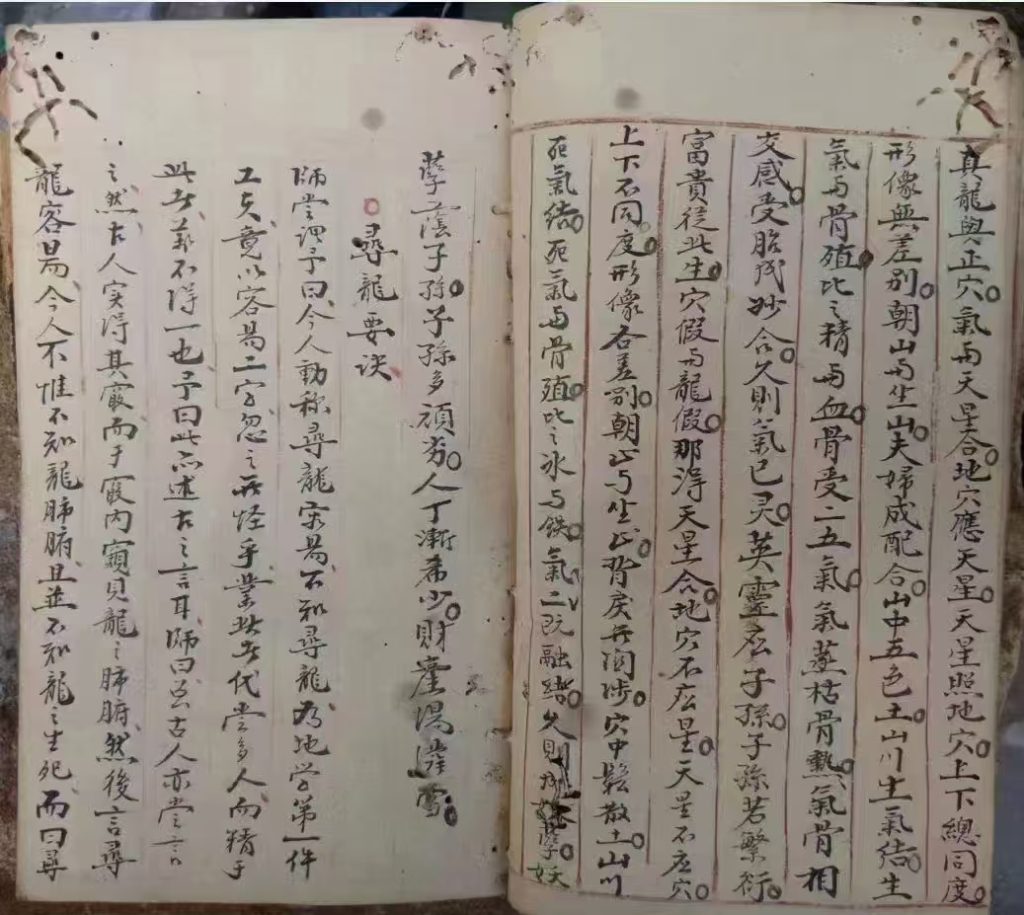 真龍與正穴。氣與天星合。地穴應天星。天星照地穴。上下總同度。
形像無差别。朝山与坐山。夫婦成配合。山中五色土。山川生氣结。生
氣与骨殖。比之精与血。骨受二五氣。氣蒸枯骨熱。氣骨相
交感。受胎成妙合。久則氣已灵。英靈应子孫。子孫若繁衍。
富貴從此生。穴假与龍假。那淂天星合。地穴不应星。天星不应穴。
上下不同度。形像各差别。朝山与坐山。背戾无関涉。穴中鬆散土。山川
死氣结。死氣与骨殖。比之冰与鉄。氣二既融结。久則成妖孽。妖
孽蔭子孫。子孫多頑劣。人丁漸希少。財產湯潑雪。
尋龍要诀
師尝謂予曰、今人動称尋龍容易、不知尋龍为地学第一件
工夫、竟以容易二字忽之、無怪乎業此者代尝多人、而精于
此者、葢不淂一也、予曰此所述古之言耳、師曰、古人亦尝言
之、然古人实淂其竅、而于竅内窺見龍之肺腑、然後言尋
龍容易、今人不惟不知龍肺腑、且並不知龍之生死、而曰尋